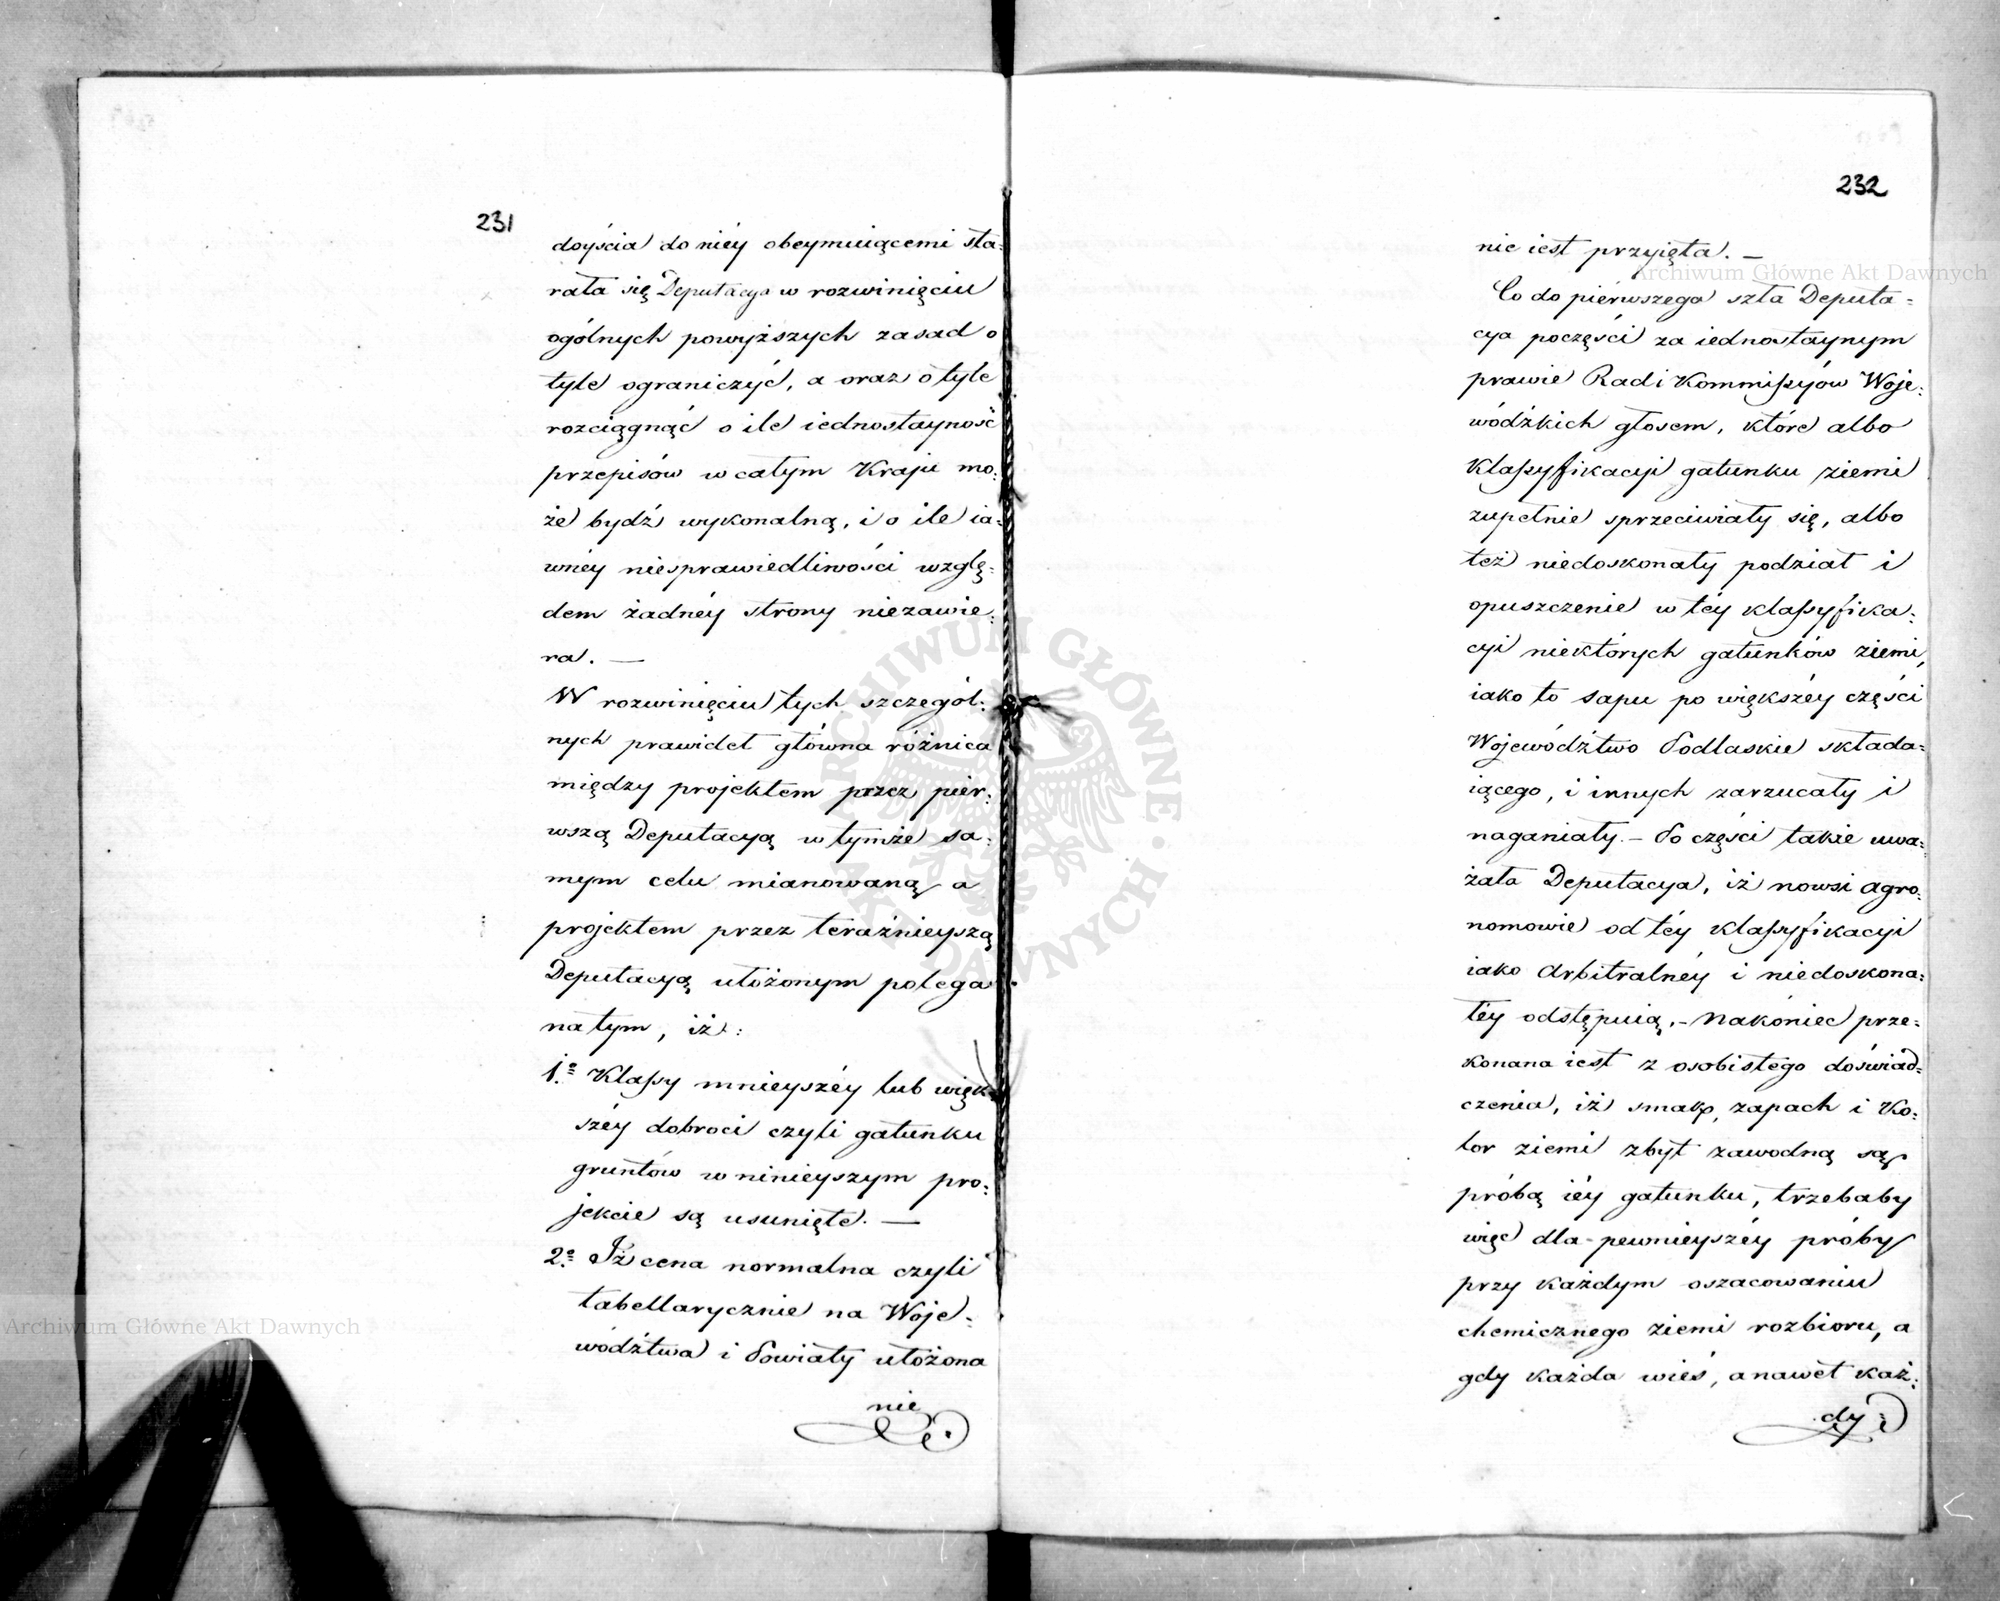 231
doyścia do niéy obeymuiącemi sta=
rała się Deputacya w rozwinięciu
ogólnych powyższych zasad o
tyle ograniczyć, a oraz o tyle
rozciągnąć o ile iednostayność
przepisów w całym Kraju mo=
że bydź wykonalną, i o ile ia=
wnéy niesprawiedliwości wzglę=
dem żadnéy strony niezawie=
ra. —
W rozwinięciu tych szczegól=
nych prawideł główna różnica
między projektem przez pier=
wszą Deputacyą w tymże sa=
mym celu mianowaną a
projektem przez teraźnieyszą
Deputacyą ułożonym polega
na tym, iż:
1.º Klassy mnieyszéy lub więk=
széy dobroci czyli gatunku
gruntów w ninieyszym pro=
jekcie są usunięte. —
2.º Iż cena normalna czyli
tabellarycznie na Woje=
wództwa i Powiaty ułożona
nie
232
nie iest przyięta. —
Co do piérwszego szła Deputa=
cya poczęści za iednostaynym
prawie Rad i Kommissyów Woje=
wódzkich głosem, które albo
klassyfikacyi gatunku ziemi
zupełnie sprzeciwiały się, albo
też niedoskonały podział i
opuszczenie w téy klassyfika=
cyi niektórych gatunków ziemi,
iako to sapu po większéy części
Województwo Podlaskie składa=
iącego, i innych zarzucały i
naganiały. — Po części także uwa=
żała Deputacya, iż nowsi agro=
nomowie od téy klassyfikacyi
iako arbitralnéy i niedoskona=
łéy odstępuią. — Nakoniec prze=
konana iest z osobistego doświad=
czenia, iż smak, zapach i ko=
lor ziemi zbyt zawodną są
próbą iéy gatunku, trzebaby
więc dla pewnieyszéy próby
przy każdym oszacowaniu
chemicznego ziemi rozbioru, a
gdy każda wieś, a nawet każ=
dy
Archiwum Główne Akt Dawnych
Archiwum Główne Akt Dawnych
ARCHIWUM GŁÓWNE AKT DAWNYCH